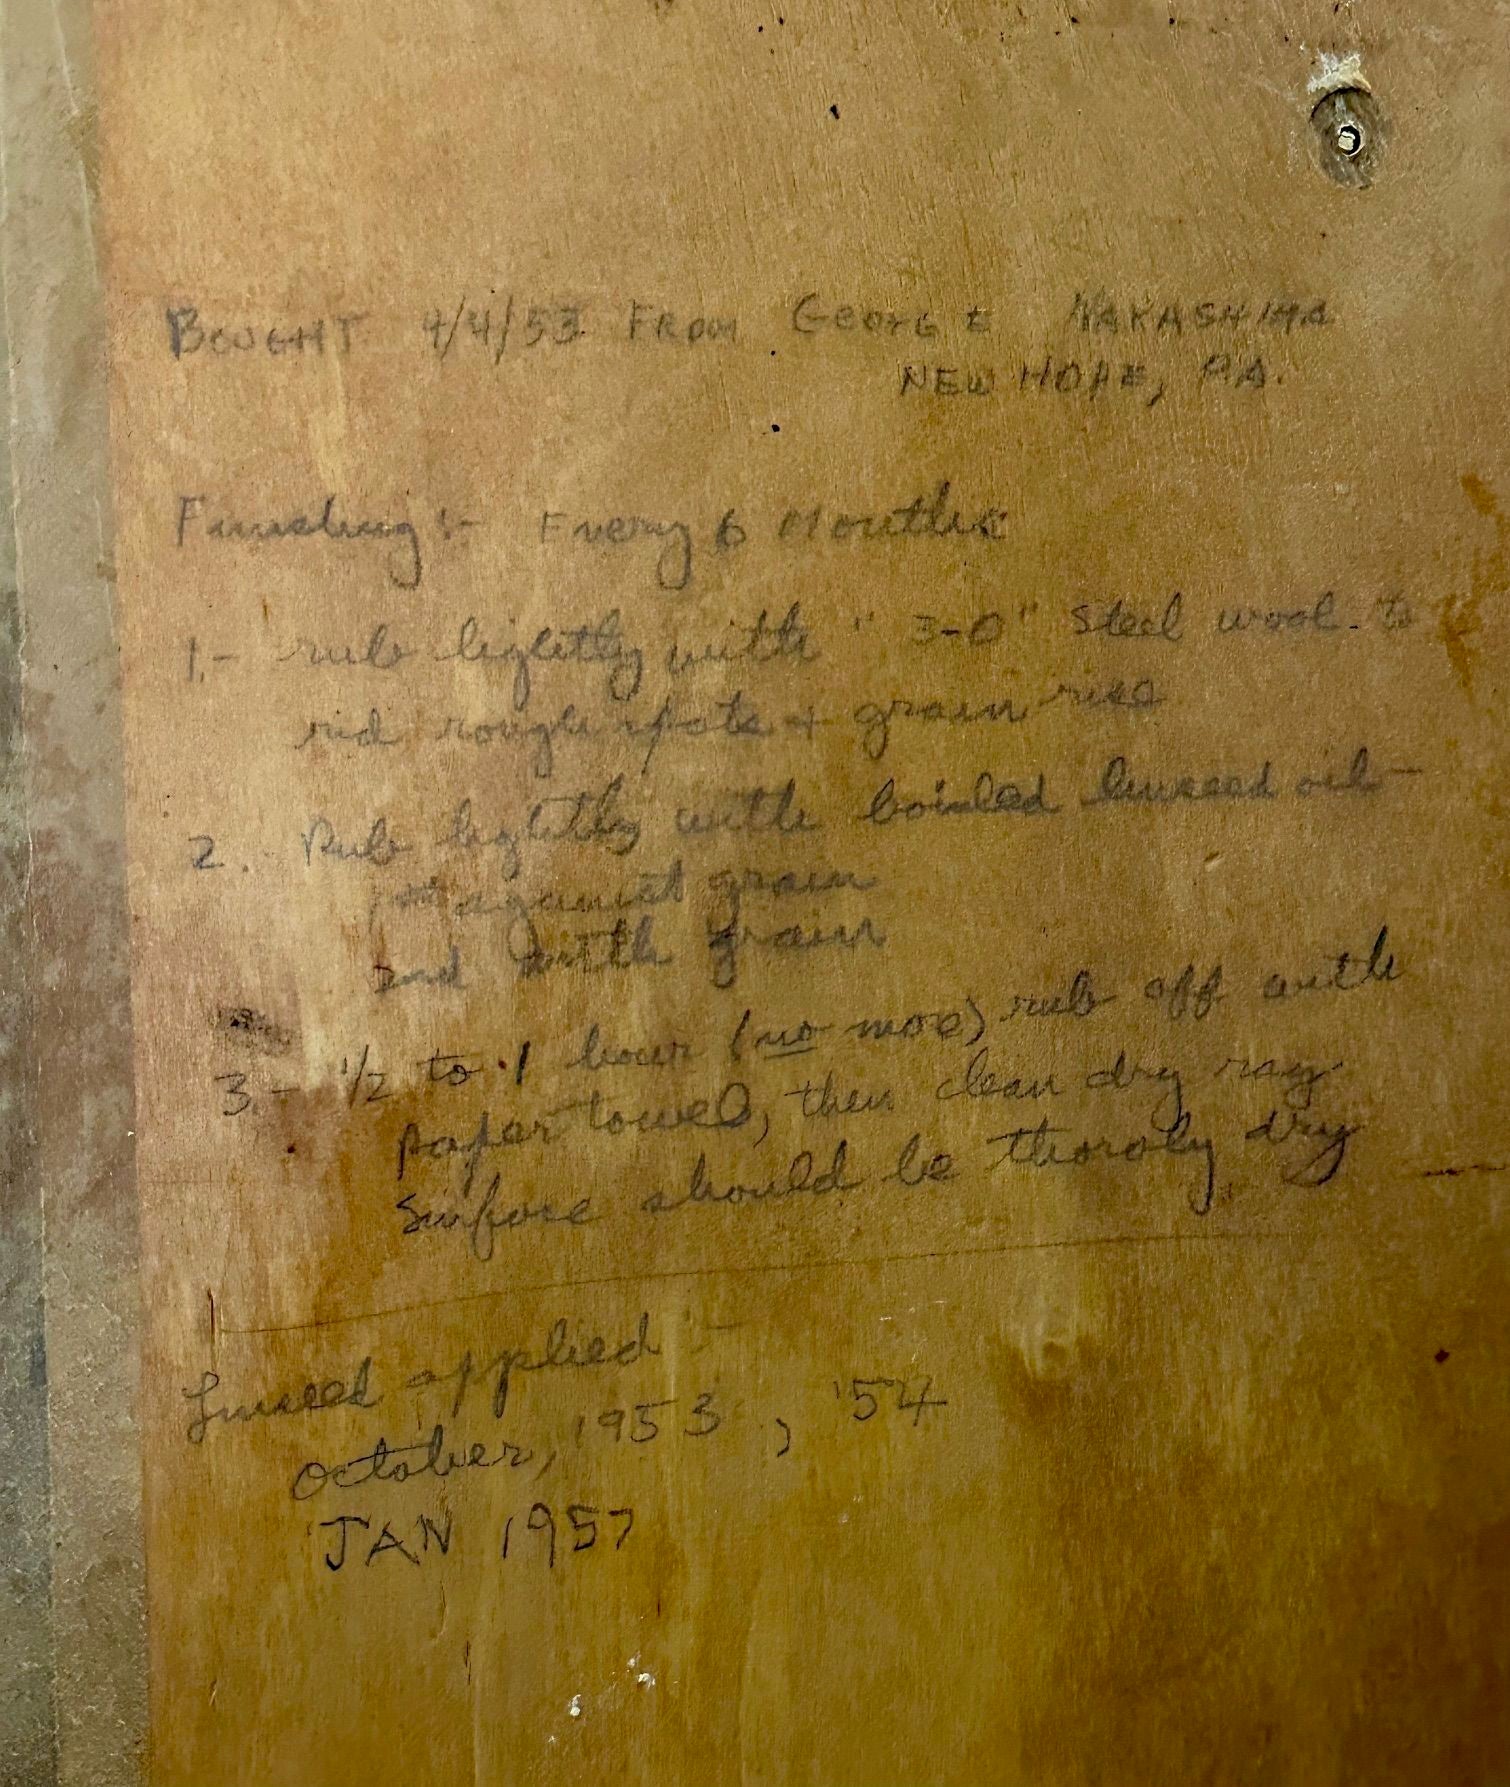 BOUGHT 4/4/53 FROM GEORGE NAKASHIMA
NEW HOPE, PA.
Finishing:- Every 6 Months
1.- rub lightly with "3-0" steel wool - to
rid rough spots + grain rise
2. - Rub lightly with boiled linseed oil -
1st against grain
2nd with grain
3.- 1/2 to 1 hour (no more) rub off with
paper towel, then clean dry rag.
Surface should be thoroly dry
Linseed applied -
October, 1953, '54
JAN 1957